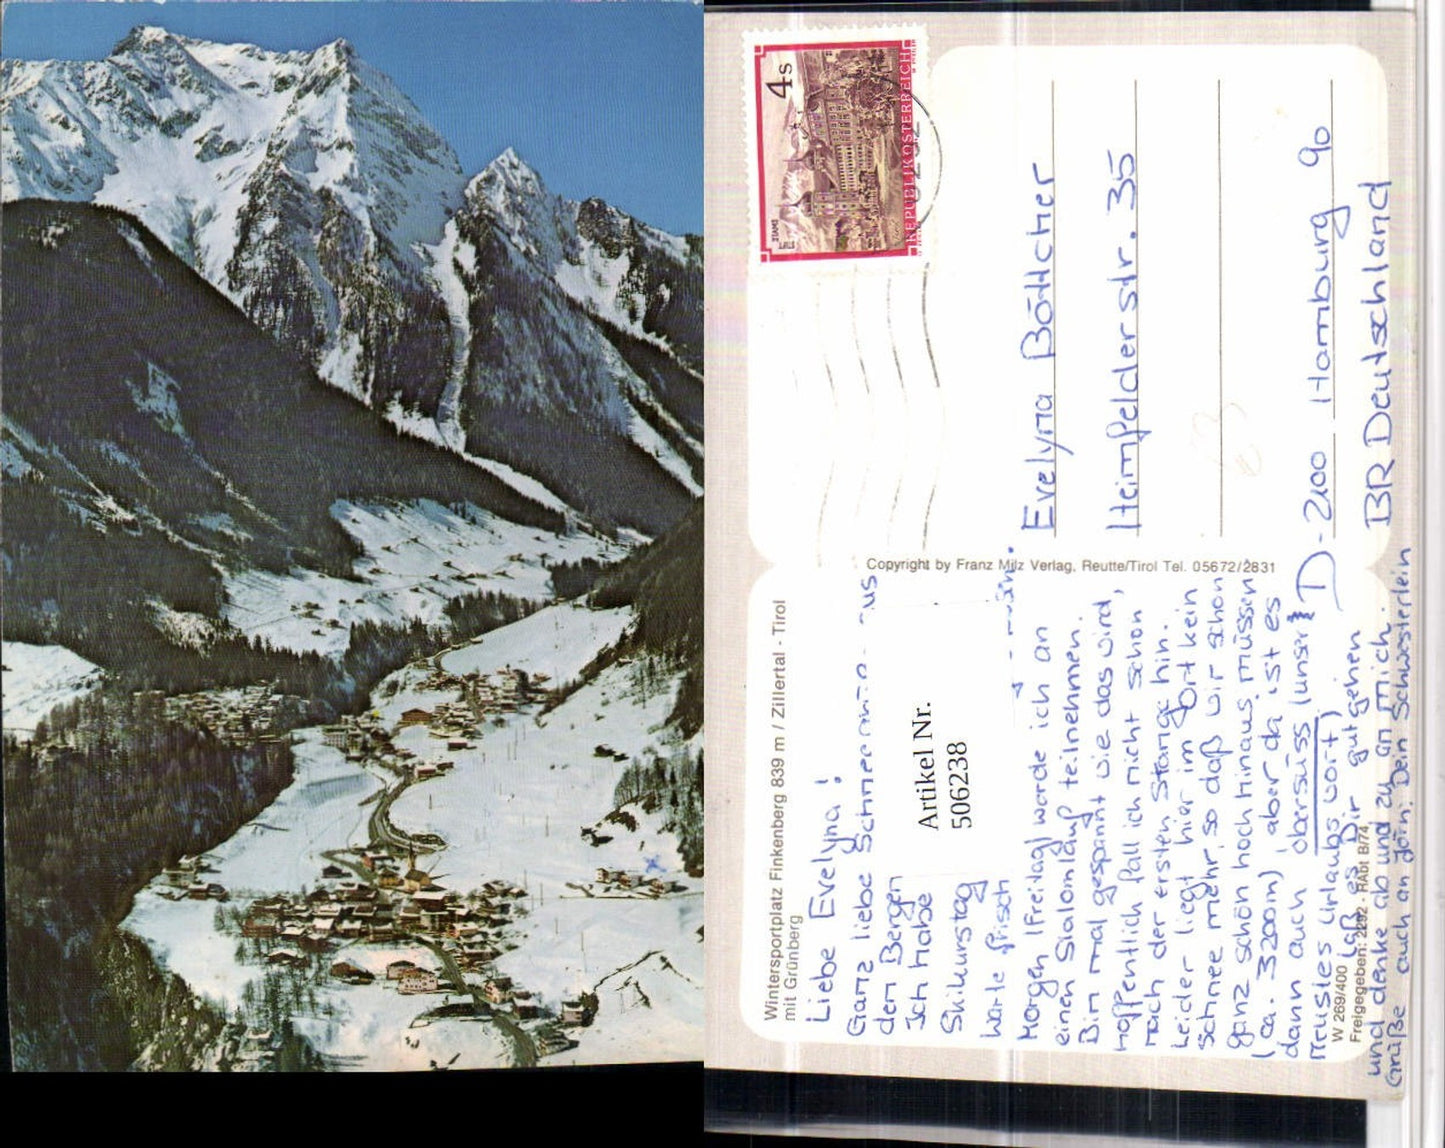 Wintersportplatz Finkenberg 839 m / Zillertal - Tirol
mit Grünberg
Liebe Evelyna!
Ganz liebe
den Bergen
Ich habe
Skikurstag
Warte frisch
Morgen (Freitag) werde ich an
einen Slalomlauf teilnehmen.
Bin mal gespannt wie das wird,
hoffentlich fall ich nicht schon
nach der ersten Stange hin.
Leider liegt hier im Ort kein
Schnee mehr, so daß wir schon
ganz schön hoch hinaus müssen
(ca. 3200m) aber da ist es
dann auch übersüss (unser
neustes Urlaubswort)
Laß es Dir gut gehen
und denke ab und zu an mich.
Grüße auch an Jörn. Dein Schwesterlein
W 269/400
Freigegeben: 2292 - RAbt B/74
Copyright by Franz Milz Verlag, Reutte/Tirol Tel. 05672/2831
Artikel Nr.
506238
4s
STAMS
REPUBLIK ÖSTERREICH
Evelyna Böttcher
Heimfelderstr. 35
D-2100 Hamburg 90
BR Deutschland